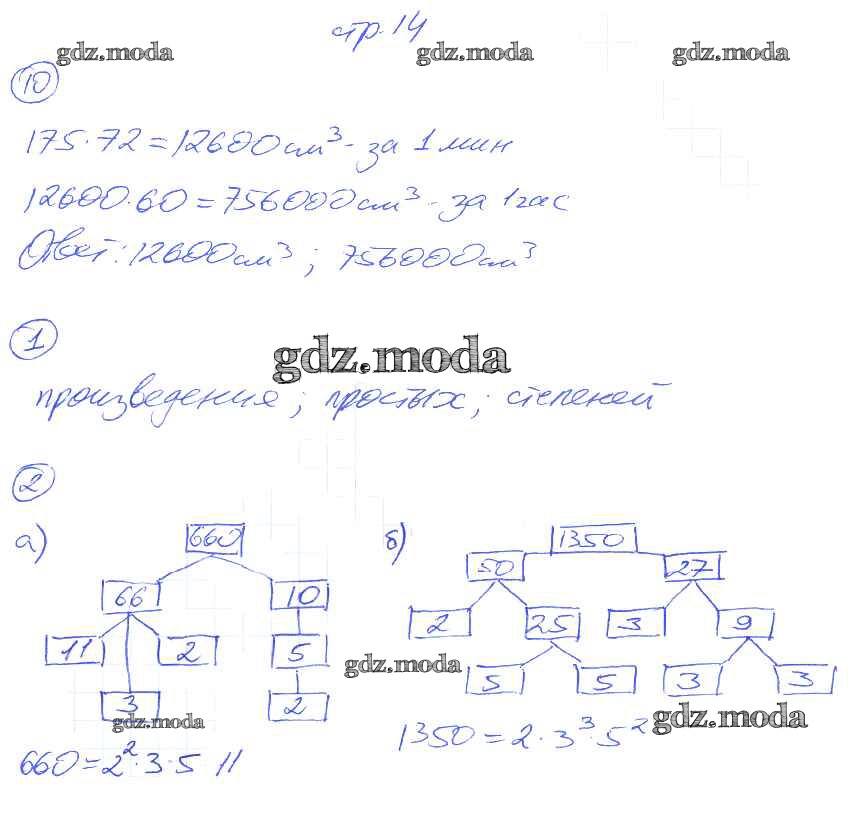 стр. 14
gdz.moda gdz.moda gdz.moda
10
175·72=12600см³ - за 1 мин
12600·60=756000см³ - за 1 час
Ответ: 12600см³; 756000см³
1
gdz.moda
произведения; простых; степеней
2
а) 660
66 10
11 2 5
3 2
660=2²·3·5 11
б) 1350
50 27
2 25 3 9
5 5 3 3
1350=2·3³·5²
gdz.moda
gdz.moda
gdz.moda